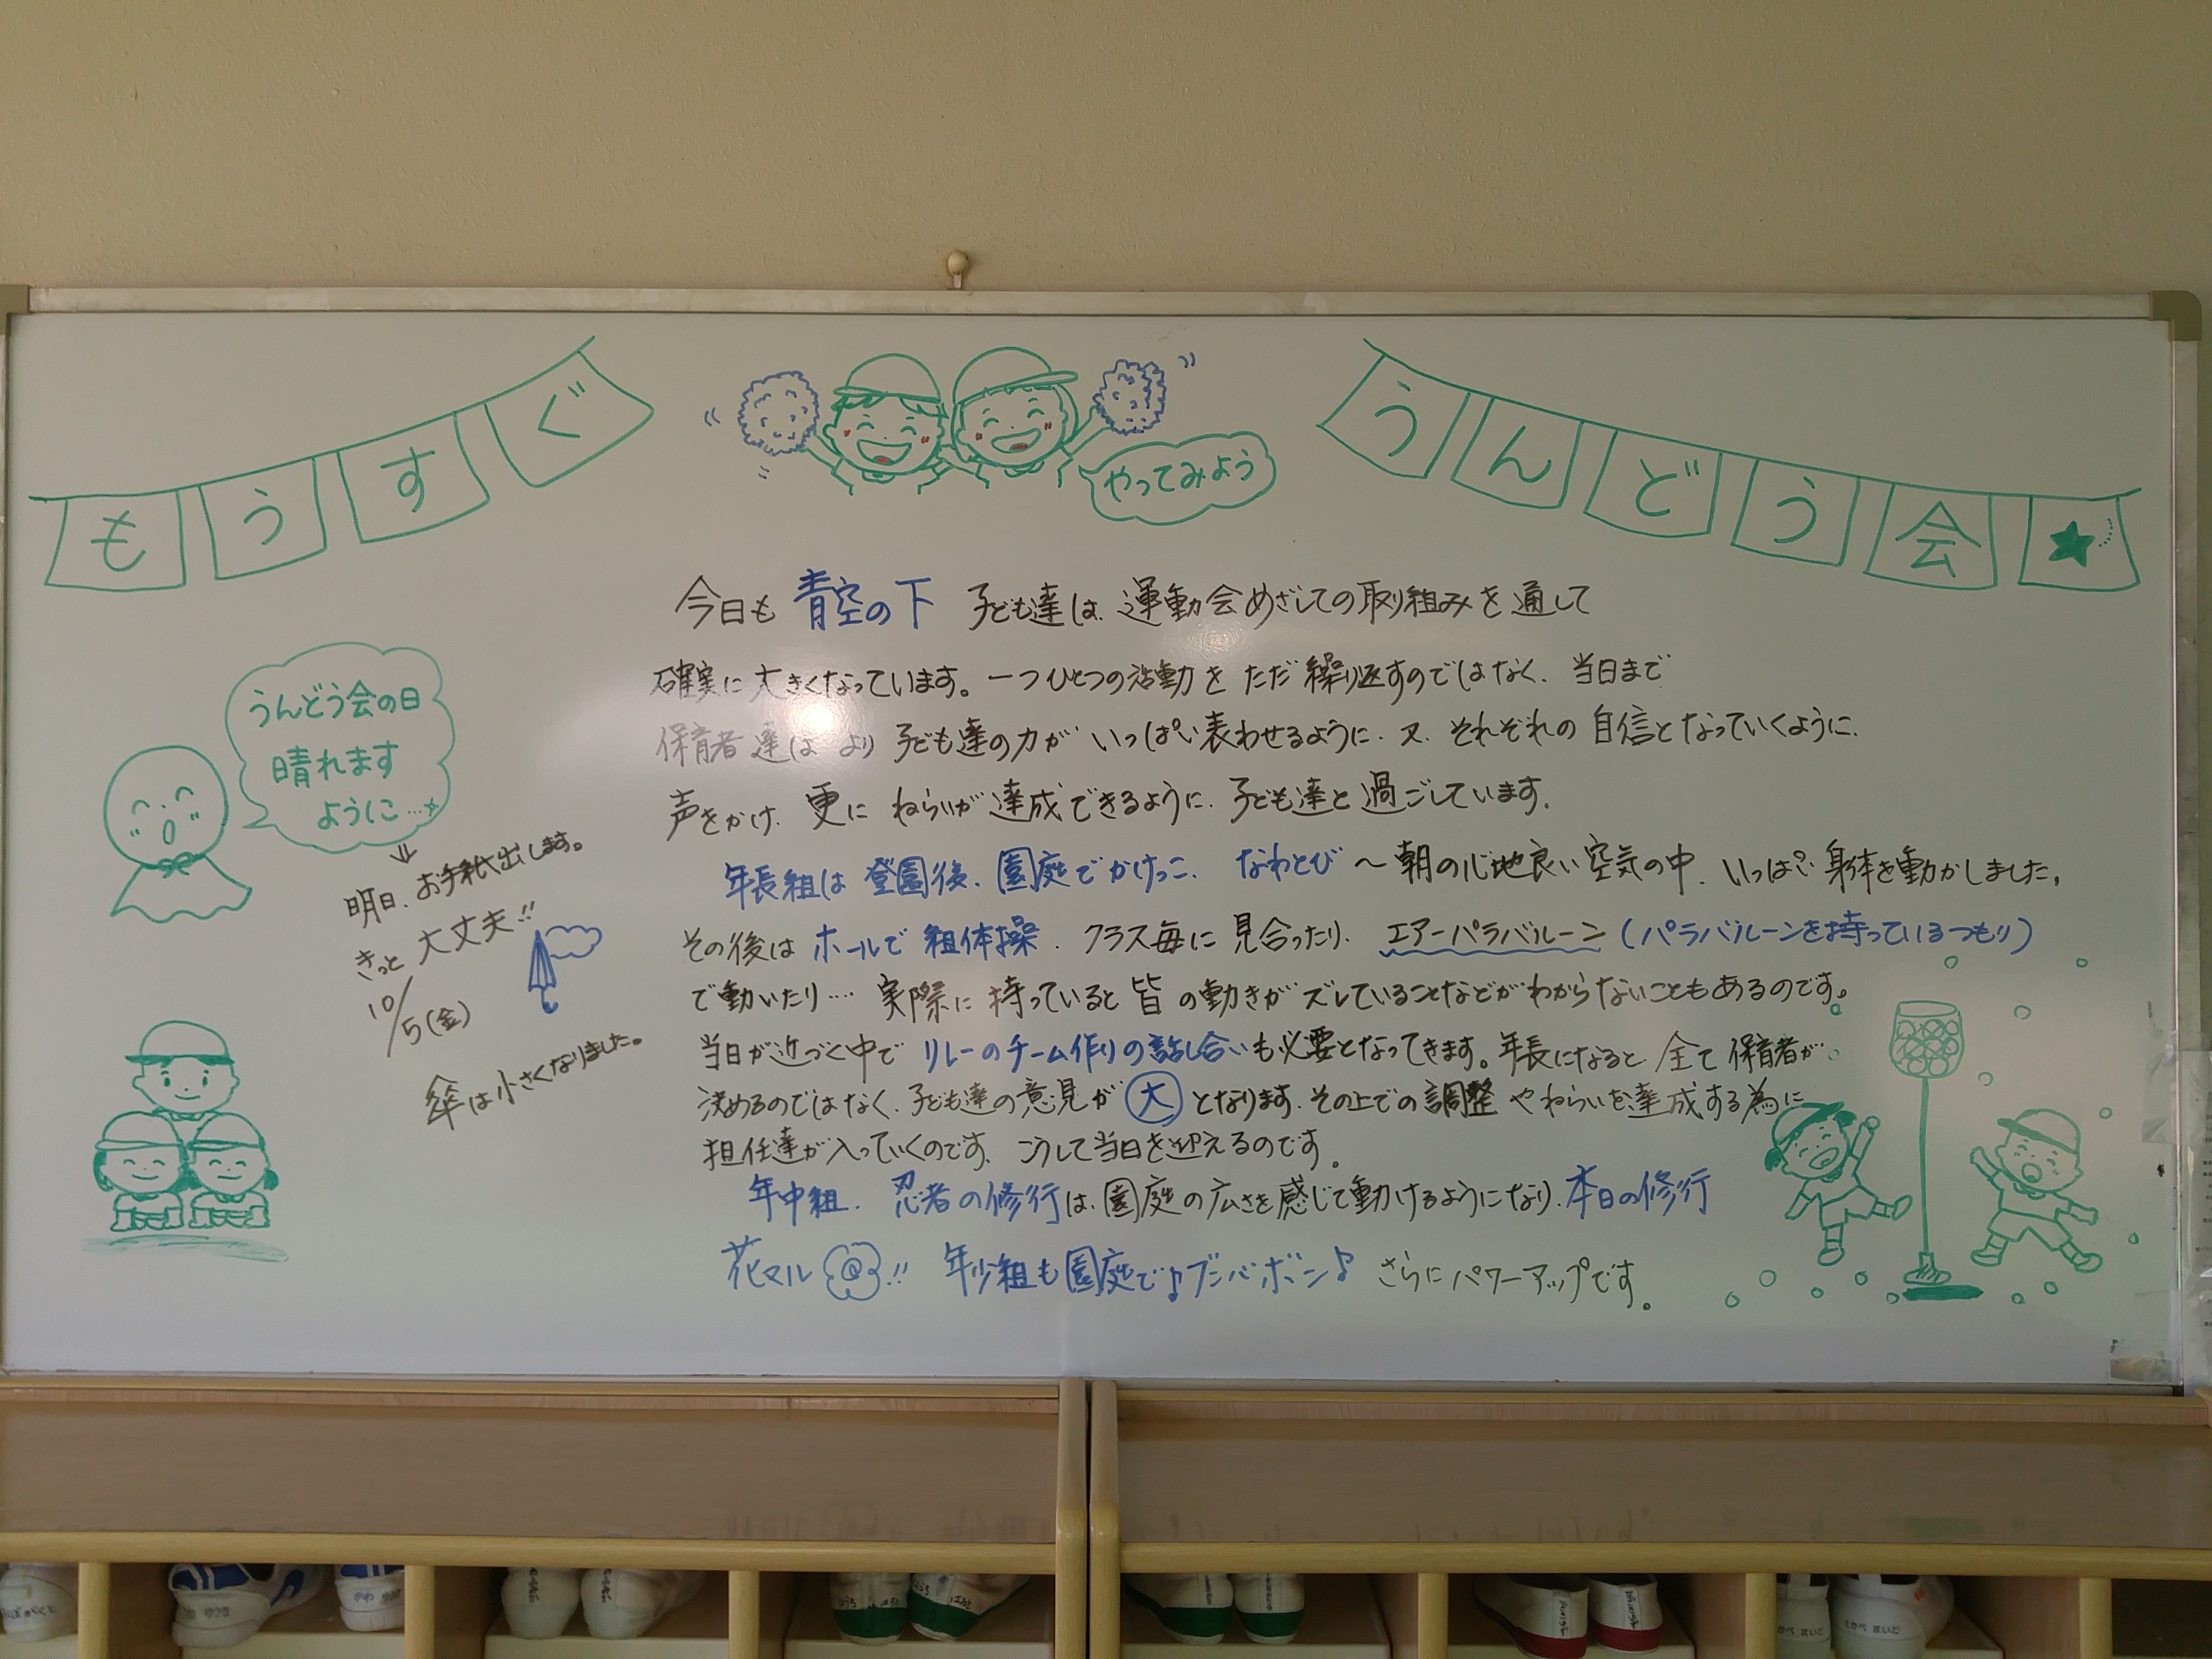 もうすぐ
やってみよう
うんどう会★
今日も 青空の下 子ども達は、運動会めざしての取り組みを通して
確実に大きくなっています。一つひとつの活動を ただ繰り返すのではなく、当日まで
保育者達は より 子ども達の力が いっぱい表わせるように、又、それぞれの 自信となっていくように、
声をかけ、更に ねらいが達成できるように、子ども達と過ごしています。
年長組は 登園後、園庭でかけっこ、なわとび ～朝の心地良い空気の中、いっぱい身体を動かしました。
その後は ホールで 組体操、クラス毎に 見合ったり、エアーパラバルーン(パラバルーンを持っているつもり)
で動いたり…… 実際に 持っていると 皆 の動きが ズレていることなどがわからないこともあるのです。
当日が近づく中で リレーのチーム作りの話し合いも必要となってきます。年長になると 全て 保育者が
決めるのではなく、子ども達の意見が 大 となります。その上での調整やねらいを達成する為に
担任達が入っていくのです、こうして当日を迎えるのです。
年中組、忍者の修行は、園庭の広さを感じて動けるようになり、本日の修行
花マル!! 年少組も園庭で♪ブンバボン♪ さらにパワーアップです。
うんどう会の日
晴れます
ように…
⇓
明日、お手紙出します。
きっと 大丈夫!!
10/5(金)
傘は小さくなりました。